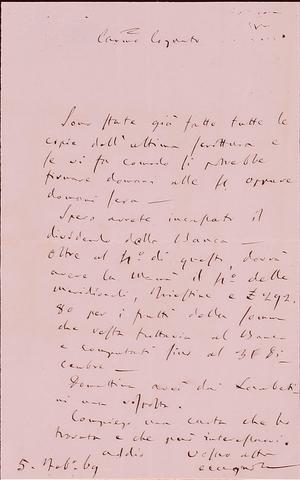 Car.mo Cognato
Sono state già fatte tutte le
copie dell'ultima scrittura e
se vi fa comodo si potrebbe
firmare domani alle 4 oppure
domani sera —
Spero avrete incassato il
dividendo della Banca —
oltre al di questo, dovrà
avere la Mamà il delle
meridionali, e £ 292.
80 per i frutti della somma
che resta tuttavia al Banco
e computati fino al 31 Di
cembre —
una risposta.
Compiego una carta che ho
trovata e che può interessarvi.
addio vostro aff.
5. 69